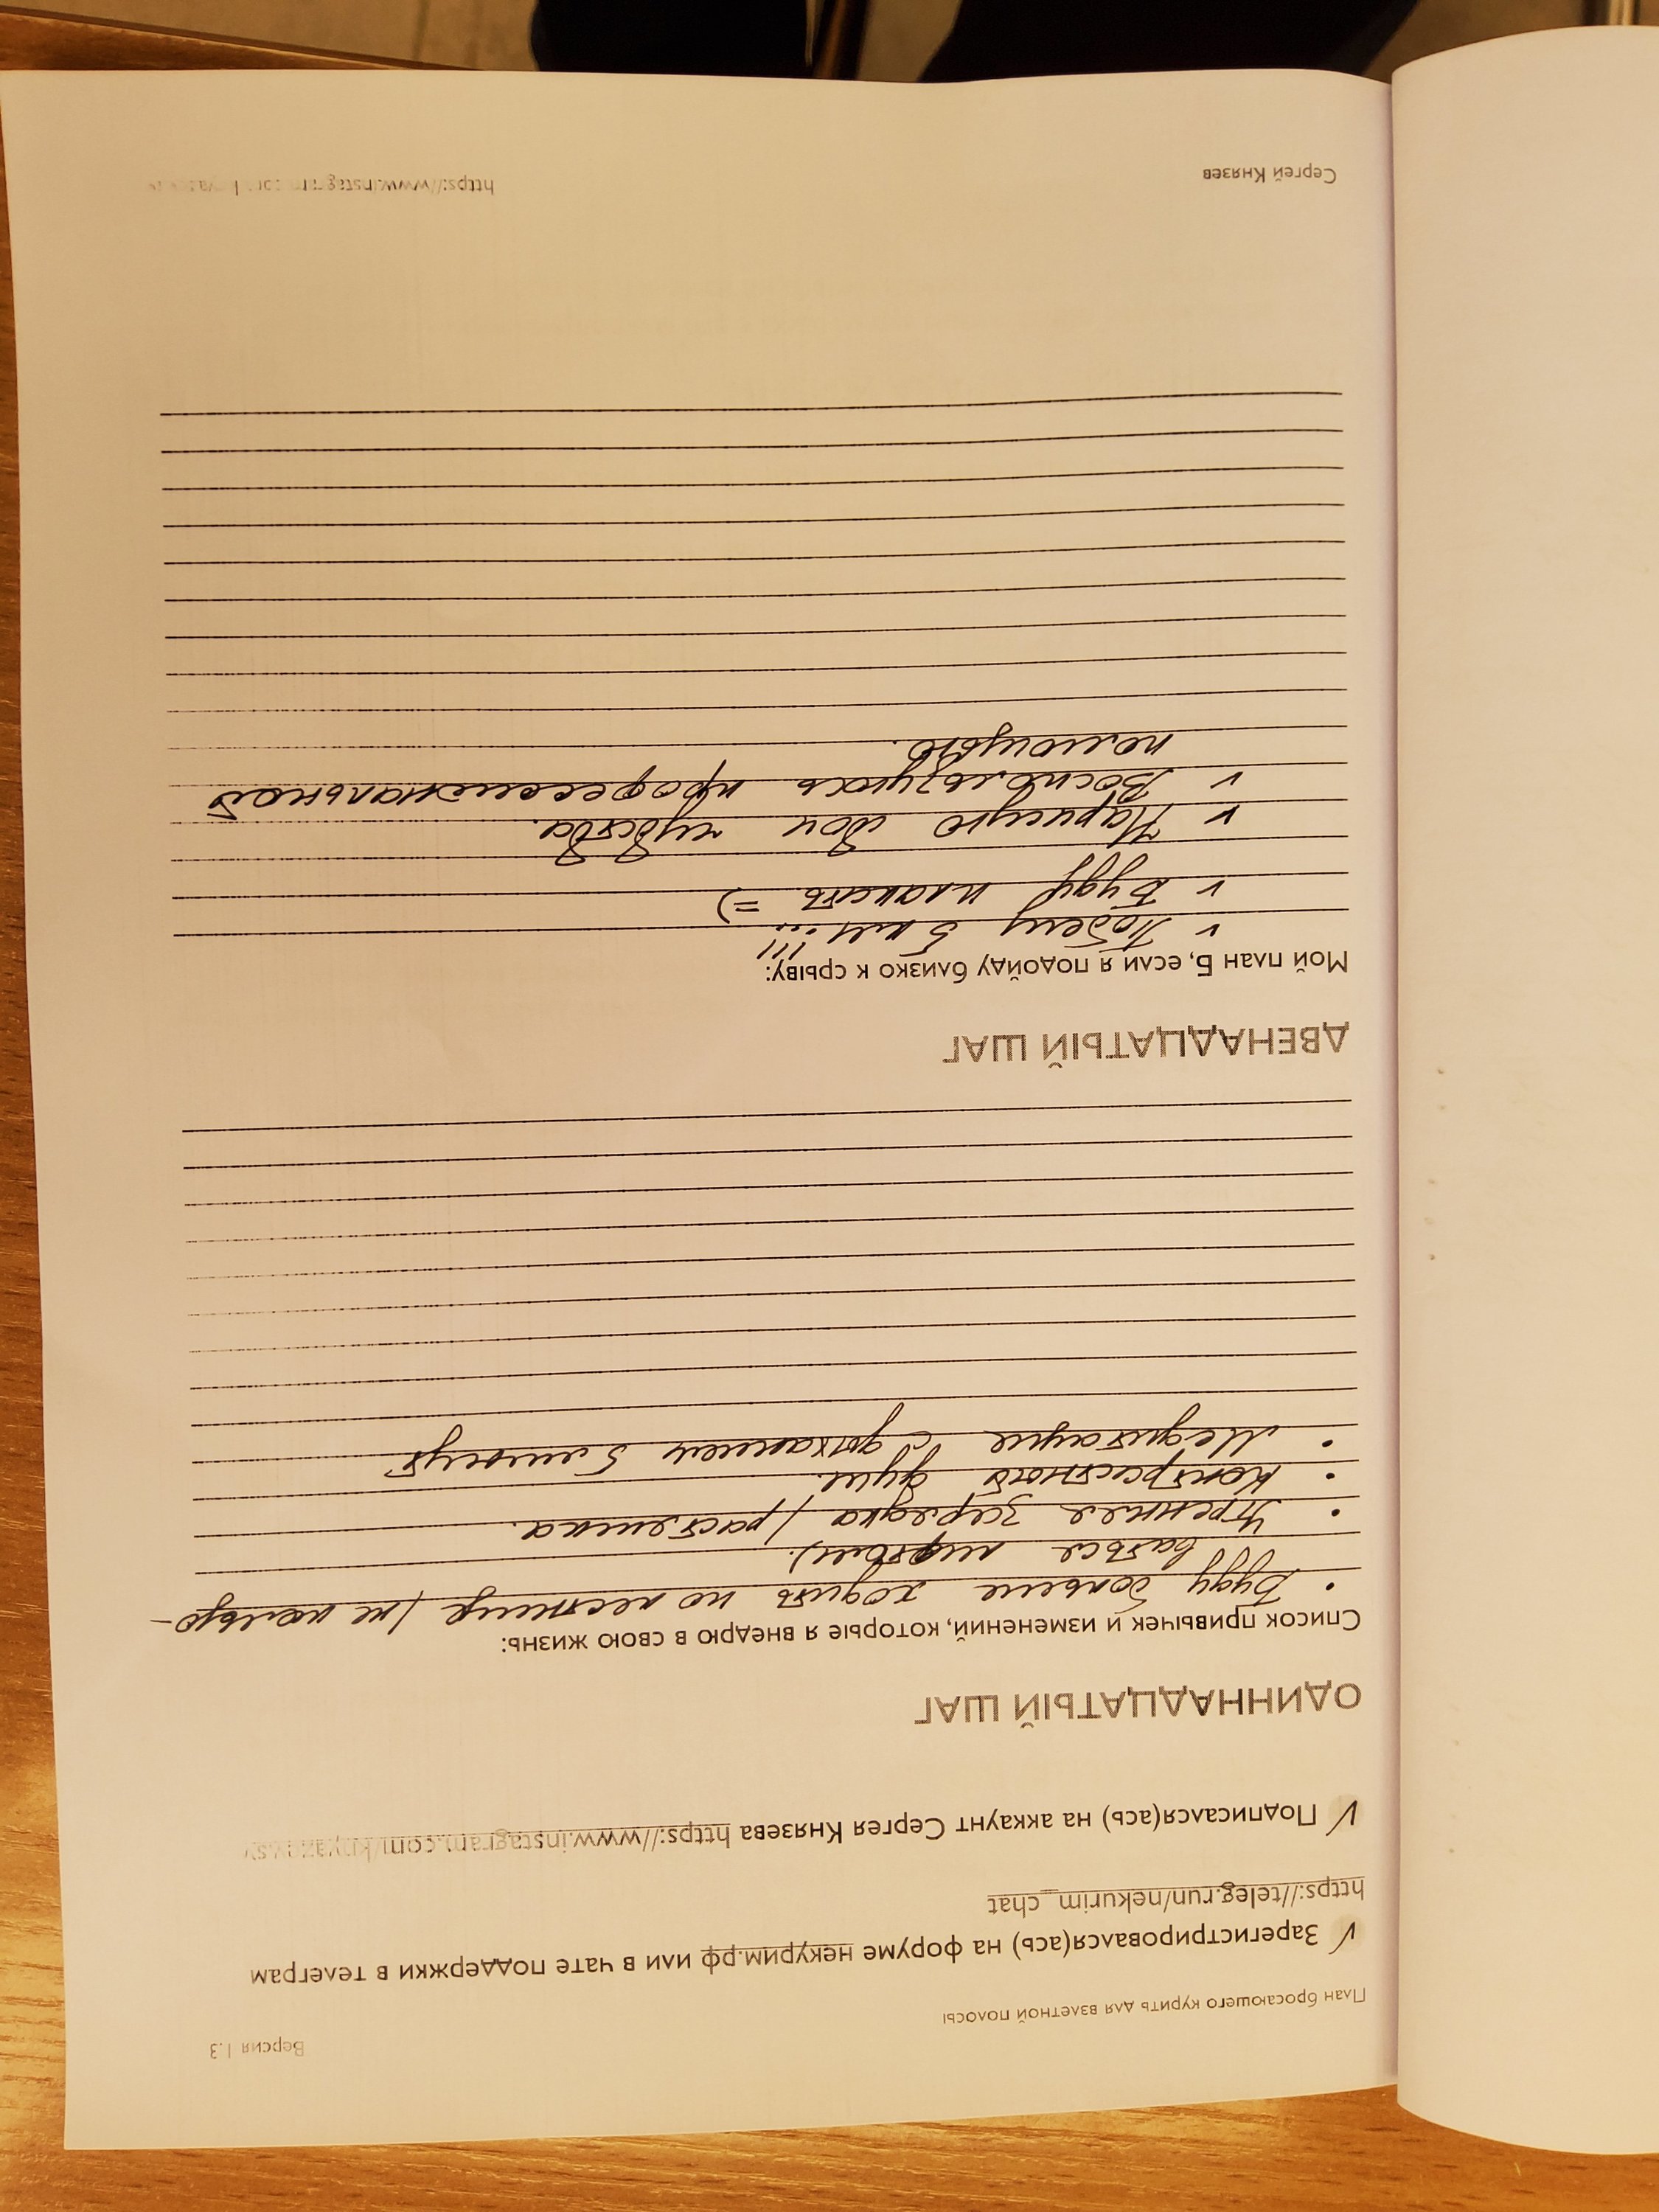 План бросающего курить для взлетной полосы
Версия 1.3
Зарегистрировался(ась) на форуме некурим.рф или в чате поддержки в телеграм
https://teleg.run/nekurim_chat
Подписался(ась) на аккаунт Сергея Князева https://www.instagram.com/knyazev.sv
ОДИННАДЦАТЫЙ ШАГ
Список привычек и изменений, которые я внедрю в свою жизнь:
• Буду больше ходить по лестнице (не пользо-
ваться лифтом).
• Утренняя зарядка / растяжка.
• Контрастный душ.
• Медитация с дыханием 5 минут
ДВЕНАДЦАТЫЙ ШАГ
Мой план Б, если я подойду близко к срыву:
v Побегу 5 км!!!
v Буду плакать =)
v Нарисую свои чувства.
v Воспользуюсь профессиональной
помощью.
Сергей Князев
https://www.instagram.com/